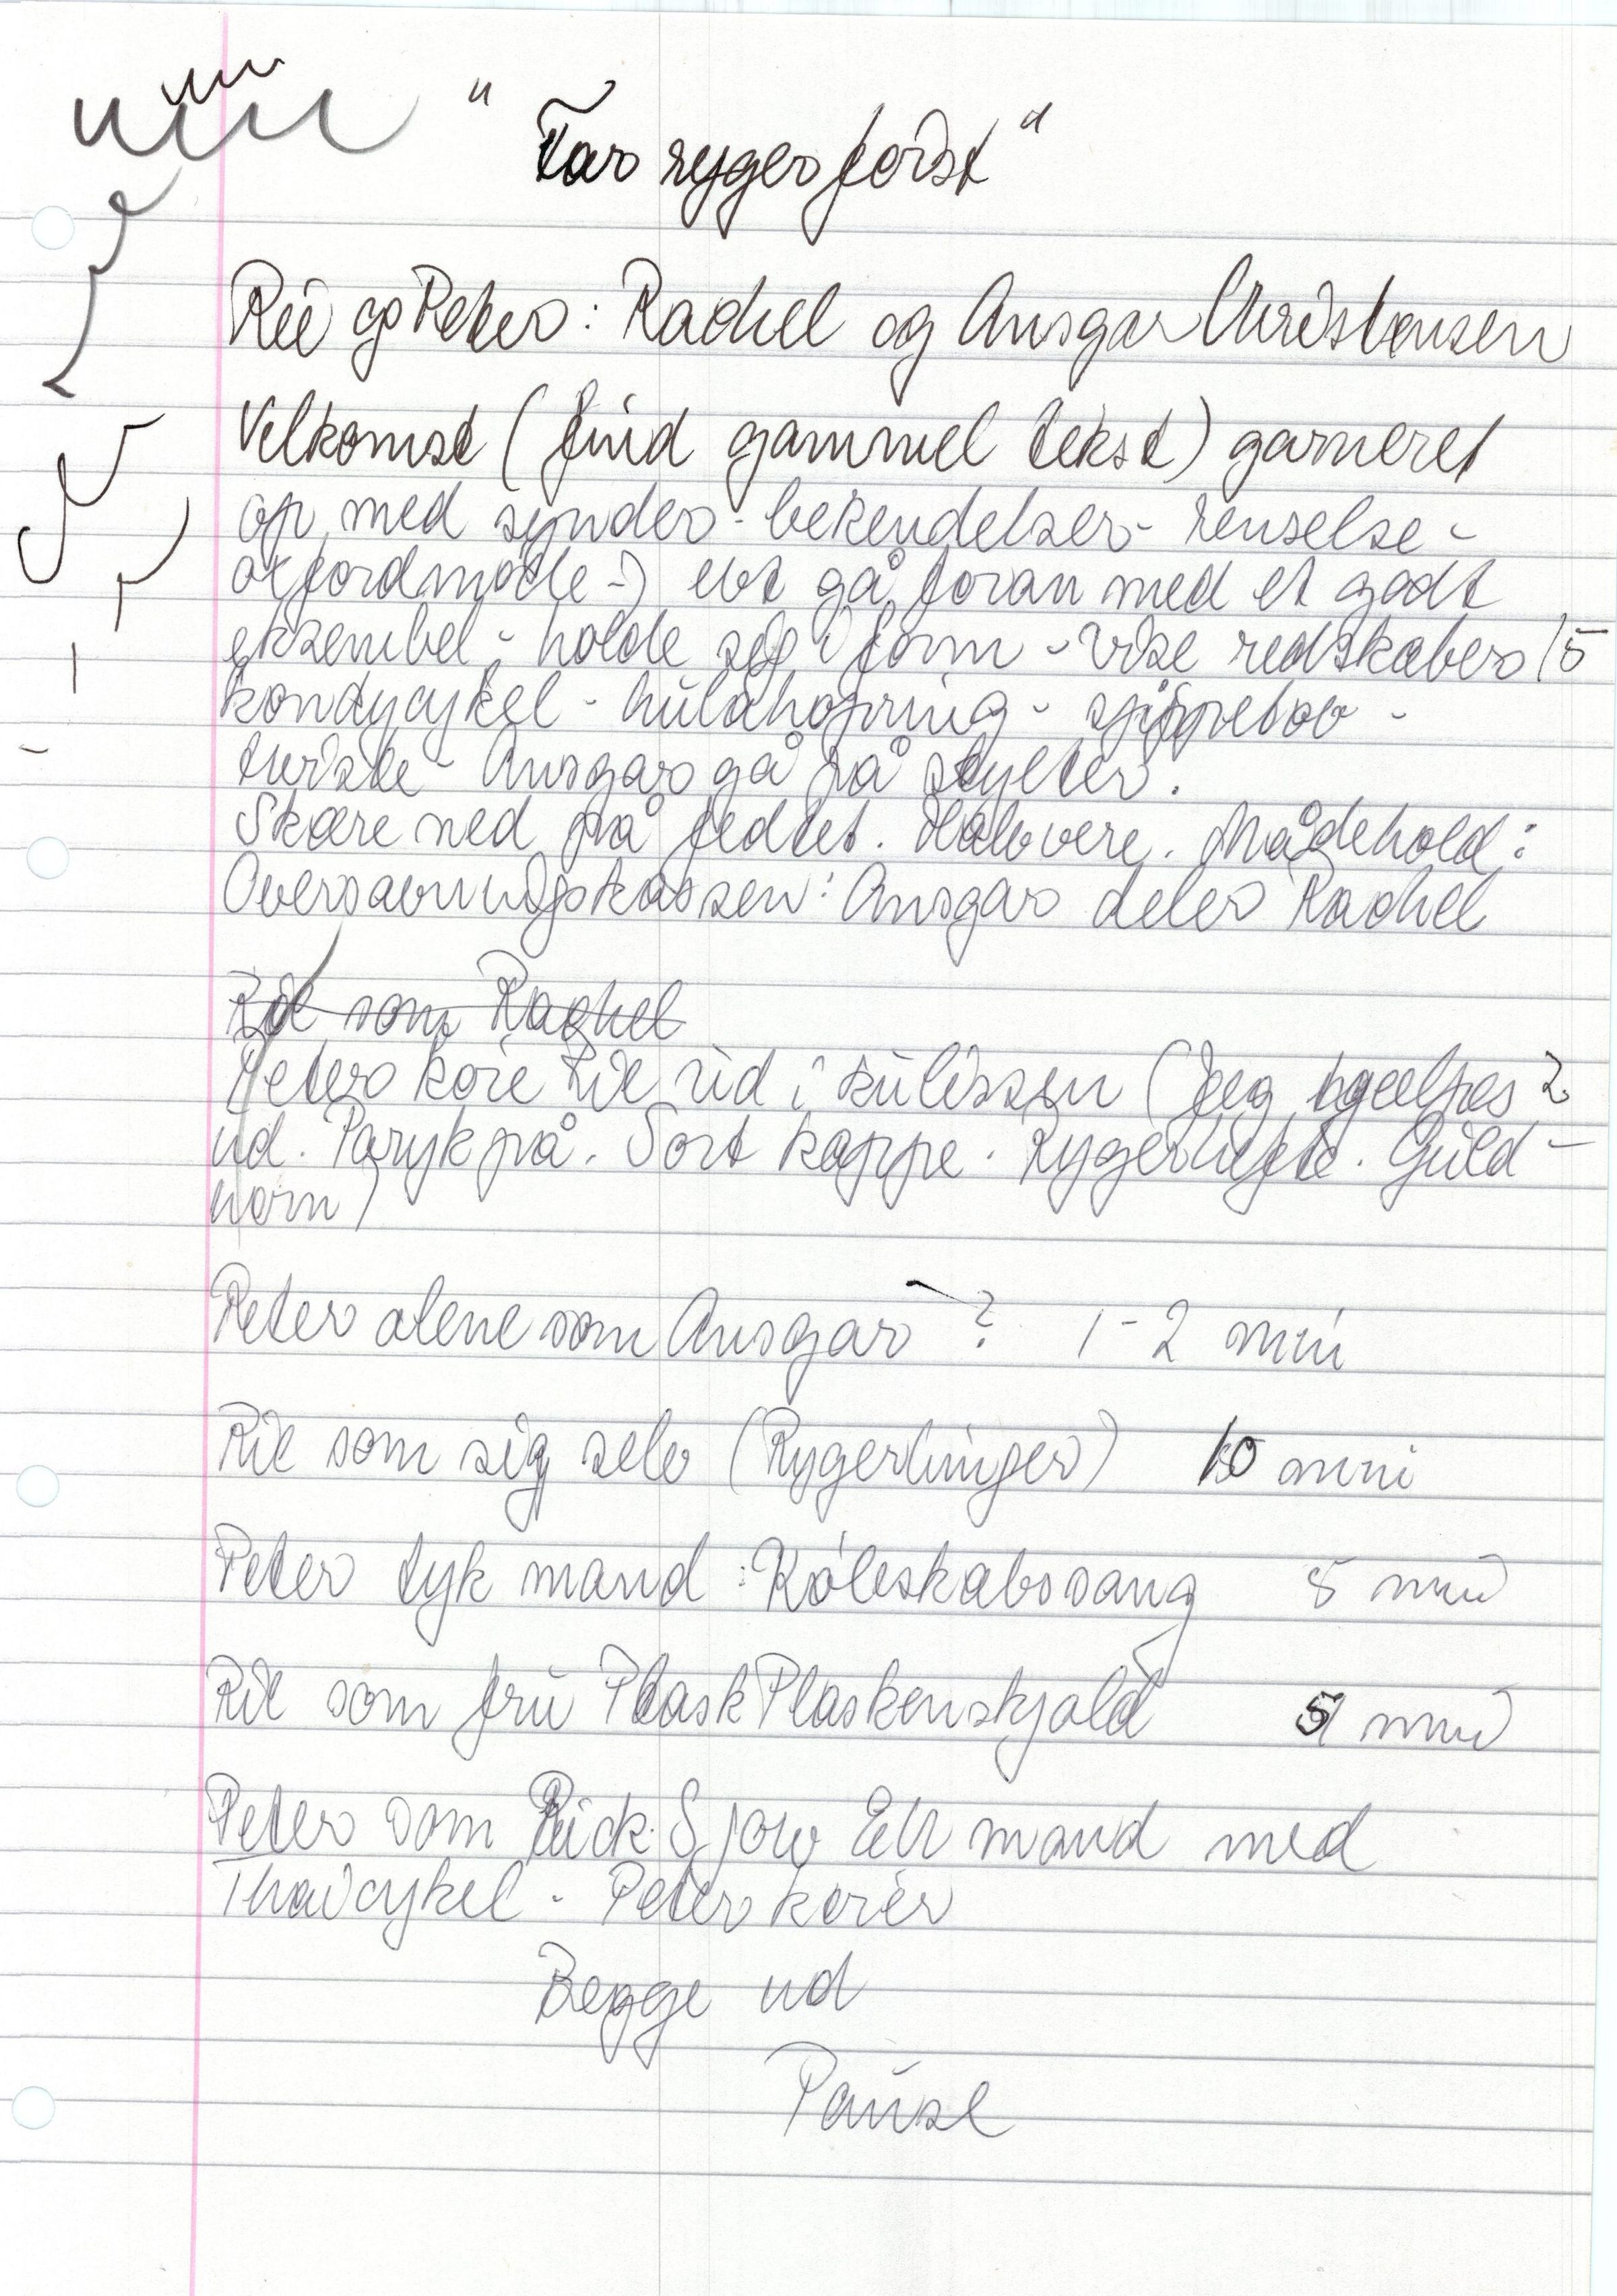 " Far ryger først "
Rie og Peter: Rachel og Ansgar Christensen
Velkomst (find gammel tekst) garneret
op med synder - bekendelser - renselse -
oxfordmøde -) evt gå foran med et godt
eksembel - holde sig i form - vise redskaber 15
kondicykel - hulahopring - sjippetov -
twiste - Ansgar gå på stylter.
Skære ned på fedtet. Halvere. Mådehold:
Oversavningskassen: Ansgar deler Rachel
Rie som Rachel
Peter køre Rie ud i kulissen (Jeg hjælpes 2
ud. Paryk på. Sort kappe. Rygerhefte. Guld-
horn)
Peter alene som Ansgar ? 1-2 min
Rie som sig selv (Rygertinger) 10 min
Peter tyk mand : Køleskabssang 5 min
Rie som fru Plask Plaskenskjold 5 min
Peter som Rick Sjow En mand med
Thaicykel - Peter kører
Begge ud
Pause